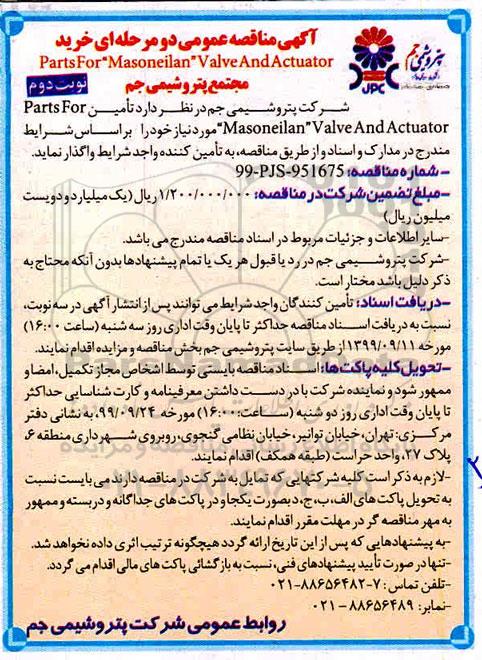 آگهی مناقصه عمومی دو مرحله ای خرید
Parts For "Masoneilan" Valve And Actuator
مجتمع پتروشیمی جم
نوبت دوم
پتروشیمی جم
JPC
شرکت پتروشیمی جم در نظر دارد تأمین Parts For
"Masoneilan" Valve And Actuator مورد نیاز خود را براساس شرایط
مندرج در مدارک و اسناد و از طریق مناقصه، به تأمین کننده واجد شرایط واگذار نماید.
-شماره مناقصه: 99-PJS-951675
-مبلغ تضمین شرکت در مناقصه: ۱/۲۰۰/۰۰۰/۰۰۰ ریال (یک میلیارد و دویست
میلیون ریال)
-سایر اطلاعات و جزئیات مربوط در اسناد مناقصه مندرج می باشد.
-شرکت پتروشیمی جم در رد یا قبول هر یک یا تمام پیشنهادها بدون آنکه محتاج به
ذکر دلیل باشد مختار است.
-دریافت اسناد: تأمین کنندگان واجد شرایط می توانند پس از انتشار آگهی در سه نوبت،
نسبت به دریافت اسناد مناقصه حداکثر تا پایان وقت اداری روز سه شنبه (ساعت ۱۶:۰۰)
مورخه ۱۳۹۹/۰۹/۱۱ از طریق سایت پتروشیمی جم بخش مناقصه و مزایده اقدام نمایند.
-تحویل کلیه پاکت ها: اسناد مناقصه بایستی توسط اشخاص مجاز تکمیل، امضا و
ممهور شود و نماینده شرکت با در دست داشتن معرفینامه و کارت شناسایی حداکثر
تا پایان وقت اداری روز دو شنبه (ساعت:۱۶:۰۰) مورخه ۹۹/۰۹/۲۴، به نشانی دفتر
مرکزی: تهران، خیابان توانیر، خیابان نظامی گنجوی، روبروی شهرداری منطقه ۶،
پلاک ۲۷، واحد حراست (طبقه همکف) اقدام نمایند.
-لازم به ذکر است کلیه شرکتهایی که تمایل به شرکت در مناقصه دارند می بایست نسبت
به تحویل پاکت های الف، ب، ج، د بصورت یکجا و در پاکت های جداگانه و دربسته و ممهور
به مهر مناقصه گر در مهلت مقرر اقدام نمایند.
-به پیشنهادهایی که پس از این تاریخ ارائه گردد هیچگونه ترتیب اثری داده نخواهد شد.
-تنها در صورت تأیید پیشنهادهای فنی، نسبت به بازگشائی پاکت های مالی اقدام می گردد.
-تلفن تماس: ۷-۸۸۶۵۶۴۸۲-۰۲۱
-نمابر: ۸۸۶۵۶۴۸۹ - ۰۲۱
روابط عمومی شرکت پتروشیمی جم